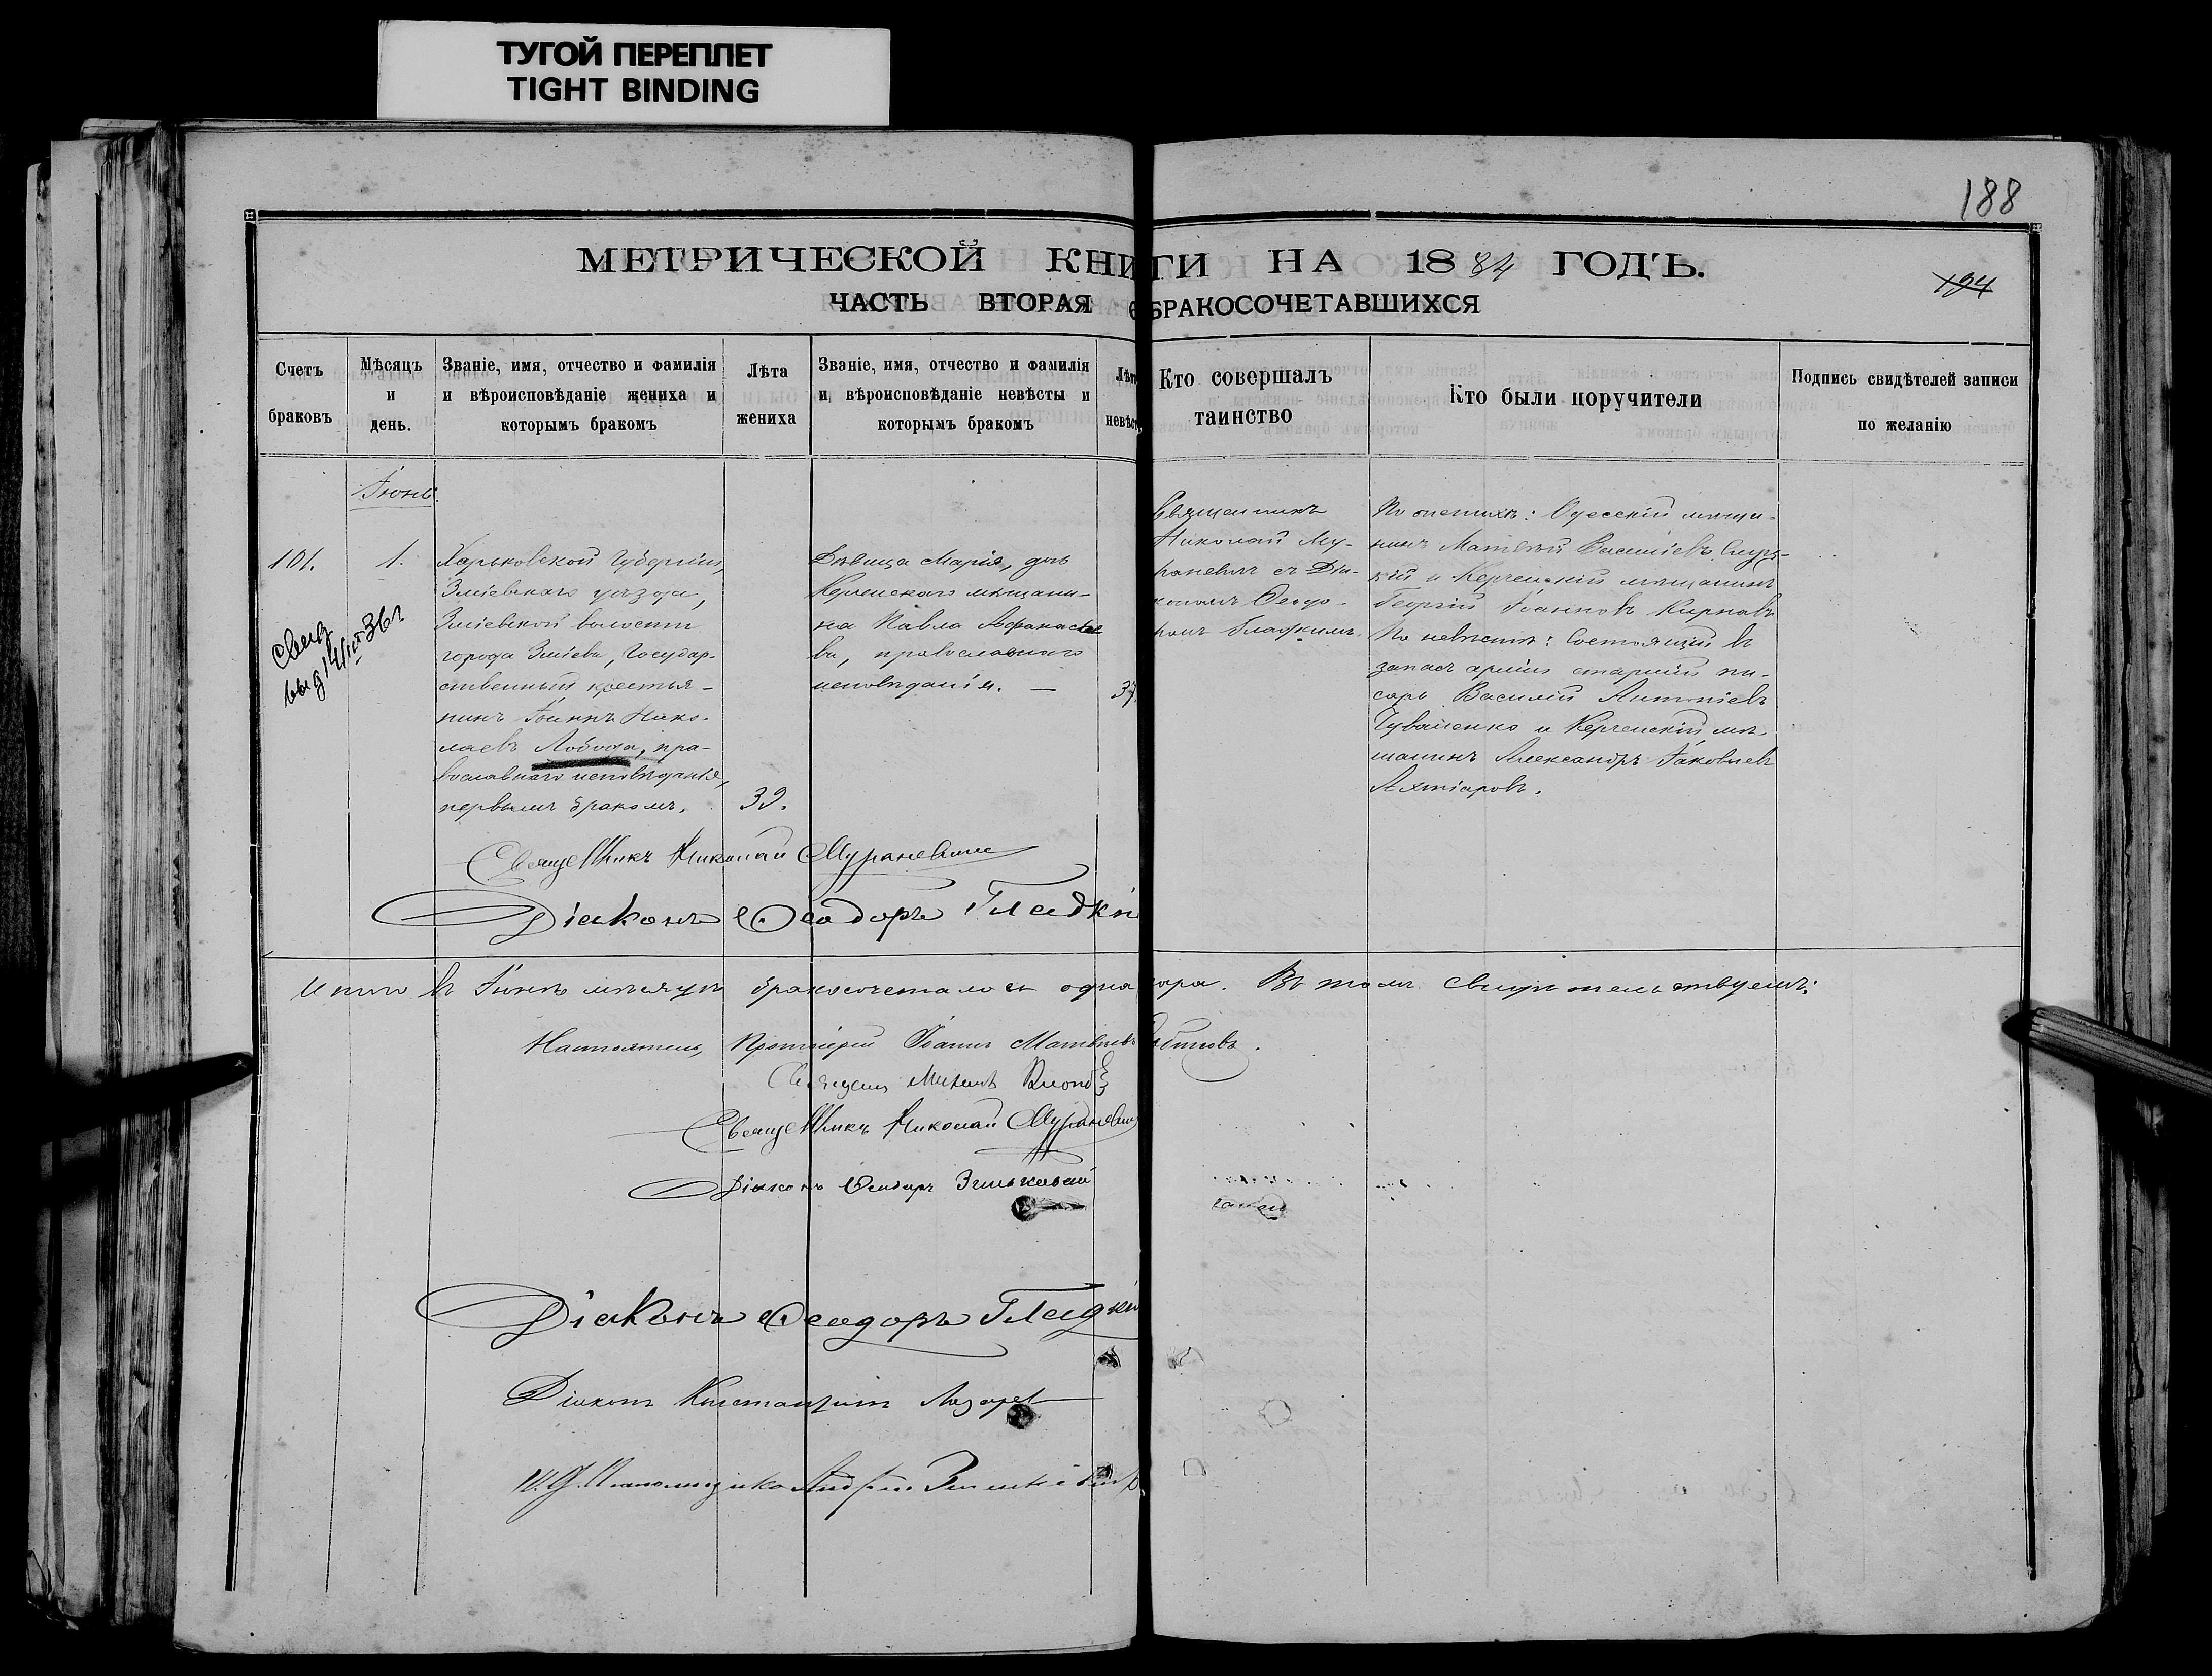 ТУГОЙ ПЕРЕПЛЕТ
TIGHT BINDING
188
МЕТРИЧЕСКОЙ КНИГИ НА 1884 ГОДЪ.
194
ЧАСТЬ ВТОРАЯ О БРАКОСОЧЕТАВШИХСЯ
Счетъ браковъ
Мѣсяцъ и день.
Званіе, имя, отчество и фамилія и вѣроисповѣданіе жениха и которымъ бракомъ
Лѣта жениха
Званіе, имя, отчество и фамилія и вѣроисповѣданіе невѣсты и которымъ бракомъ
Лѣта невѣсты
Кто совершалъ таинство
Кто были поручители
Подпись свидѣтелей записи по желанію
Іюнь.
101.
свид
выд 14/IV 36 г
1.
Харьковской Губерніи,
Зміевскаго уѣзда,
Зміевской волости
города Зміева, Государ-
ственный крестья-
нинъ Іоаннъ Нико-
лаевъ Лобода, пра-
вославнаго исповѣданія,
первымъ бракомъ.
39.
Дѣвица Марія, дочь
Керченскаго мѣщани-
на Павла Афанасье
ва, православнаго
исповѣданія. —
37.
Священникъ
Николай Му-
раневичъ съ Діа-
кономъ Ѳеодо-
ромъ Гладкимъ.
По женихѣ: Одесскій мѣща-
нинъ Матвѣй Васильевъ
кій и Керченскій мѣщанинъ
Георгій Іоанновъ
По невѣстѣ: Состоящій въ
запасѣ арміи старшій пи-
сарь Василій
и Керченскій мѣ-
щанинъ Александръ Іаковлевъ
Ахтіаровъ.
Священникъ Николай Мураневичъ
Діаконъ Ѳеодоръ Гладкій
Итого въ Іюнѣ мѣсяцѣ бракосочеталось одна пара. Въ томъ свидѣтельствуемъ:
Настоятель, Протоіерей Іоаннъ Матвѣевъ
Священ Михаилъ
Священникъ Николай Мураневичъ
Діаконъ Ѳеодоръ
Діаконъ Ѳеодоръ Гладкій
Діаконъ Константинъ Лазарев